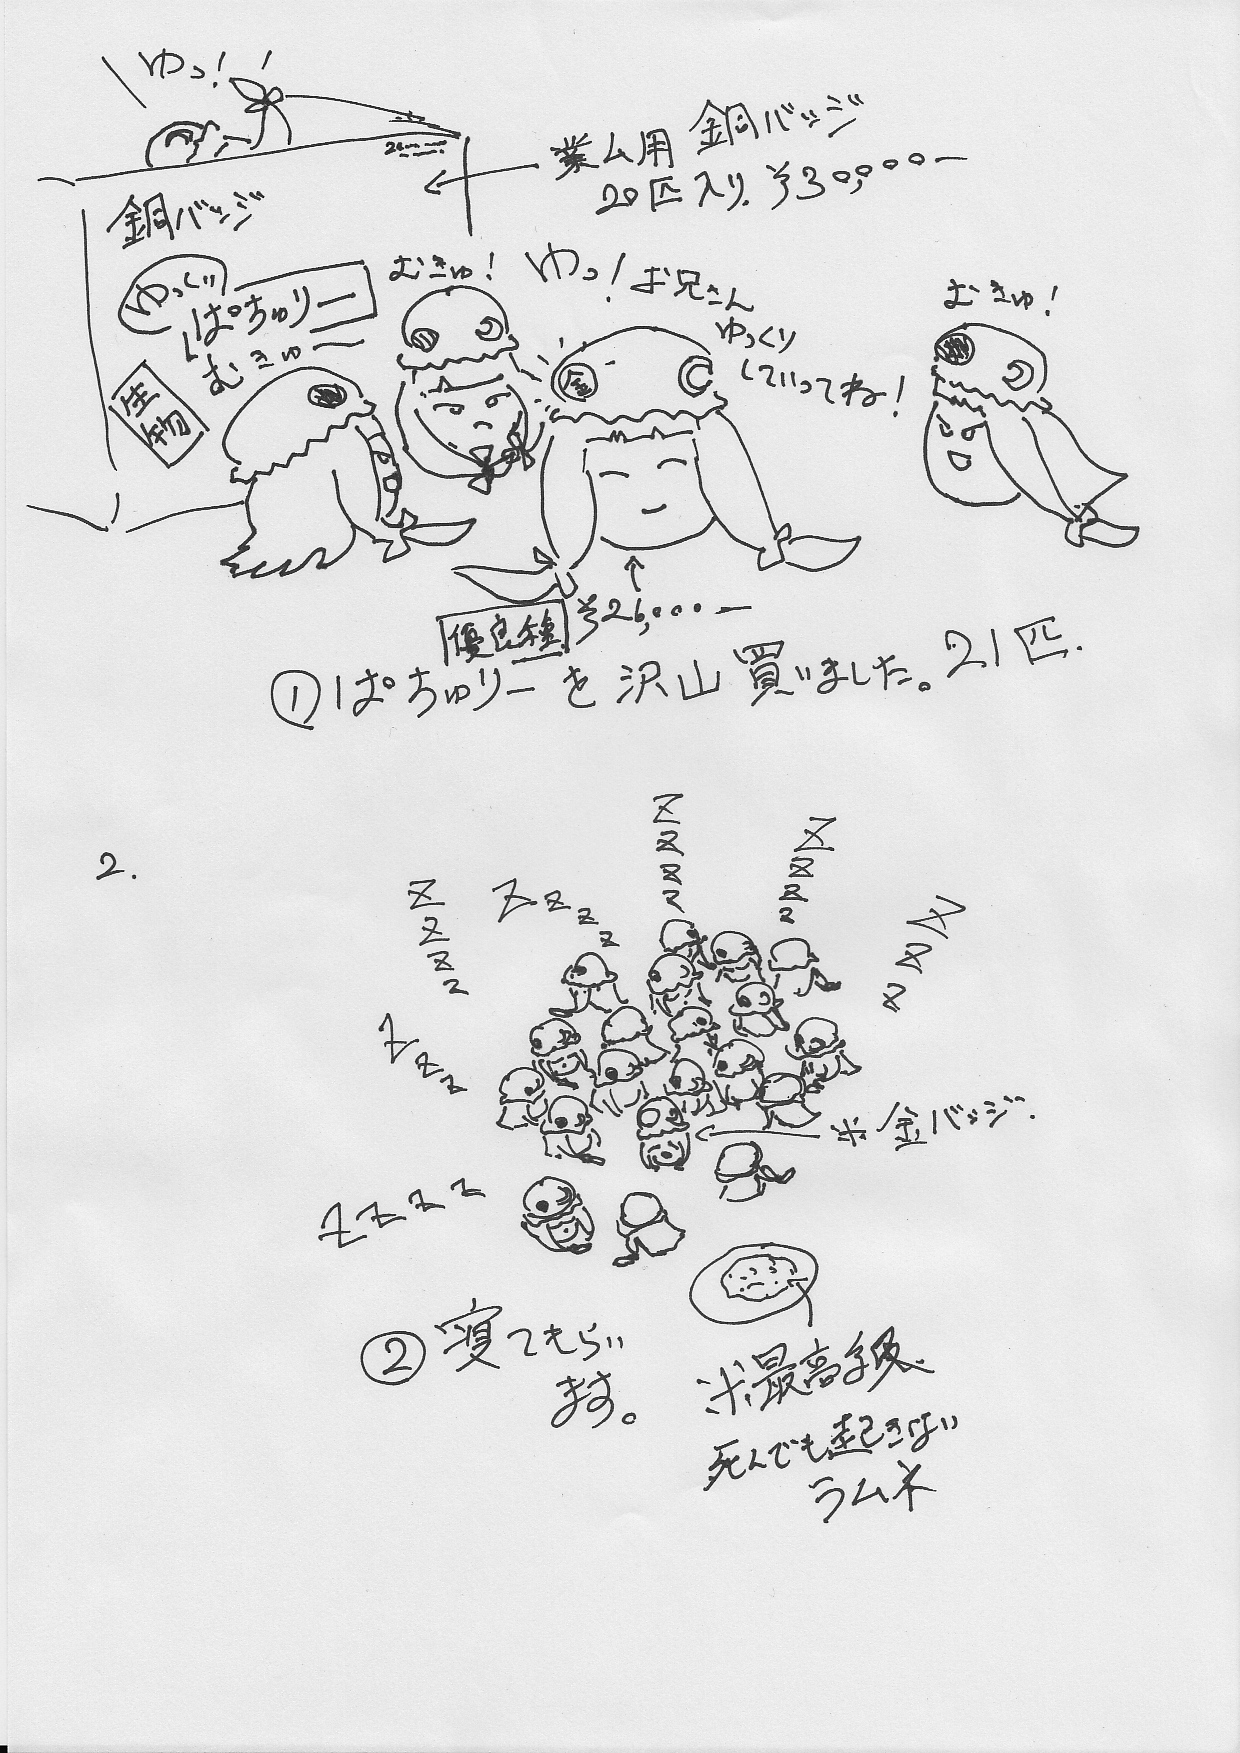 ゆっ!
業ム用 銅バッジ
20匹入り ¥30,000ー
銅バッジ
ゆっくり
ぱちゅりー
むきゅー
生物
むきゅ!
ゆっ! お兄さん
ゆっくり
していってね!
むきゅ!
金
優良種
¥26,000ー
①ぱちゅりーを沢山買いました。21匹.
2.
Z Z Z Z
Z z z z
Z Z Z Z
Z Z Z Z
Z Z Z
Z z z
※金バッジ.
Z Z Z Z
②寝てもらい
ます。
※最高級
死んでも起きない
ラムネ